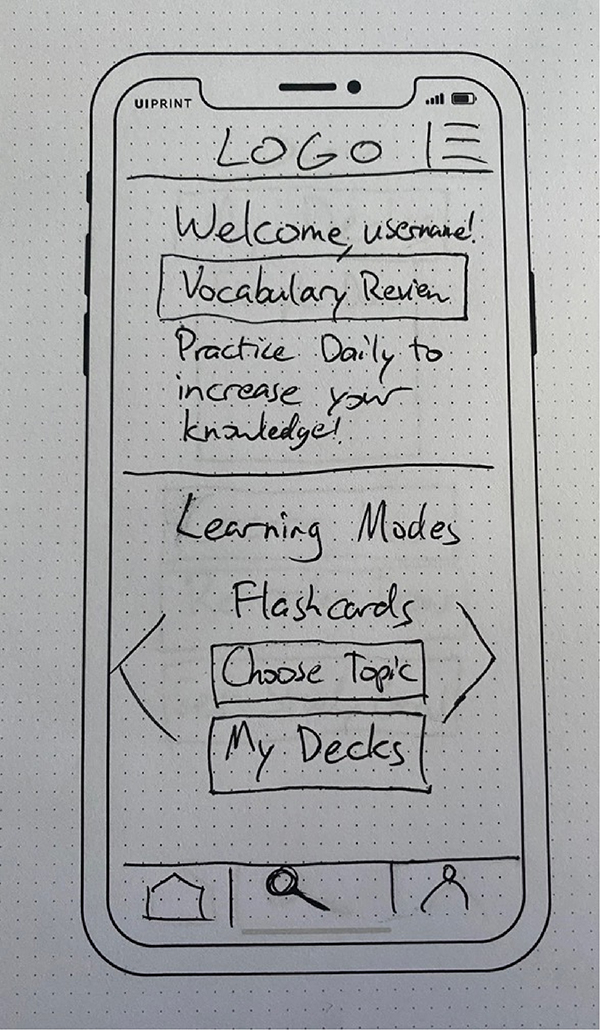 UIPRINT
LOGO
Welcome, username!
Vocabulary Review
Practice Daily to
increase your
knowledge!
Learning Modes
Flashcards
Choose Topic
My Decks